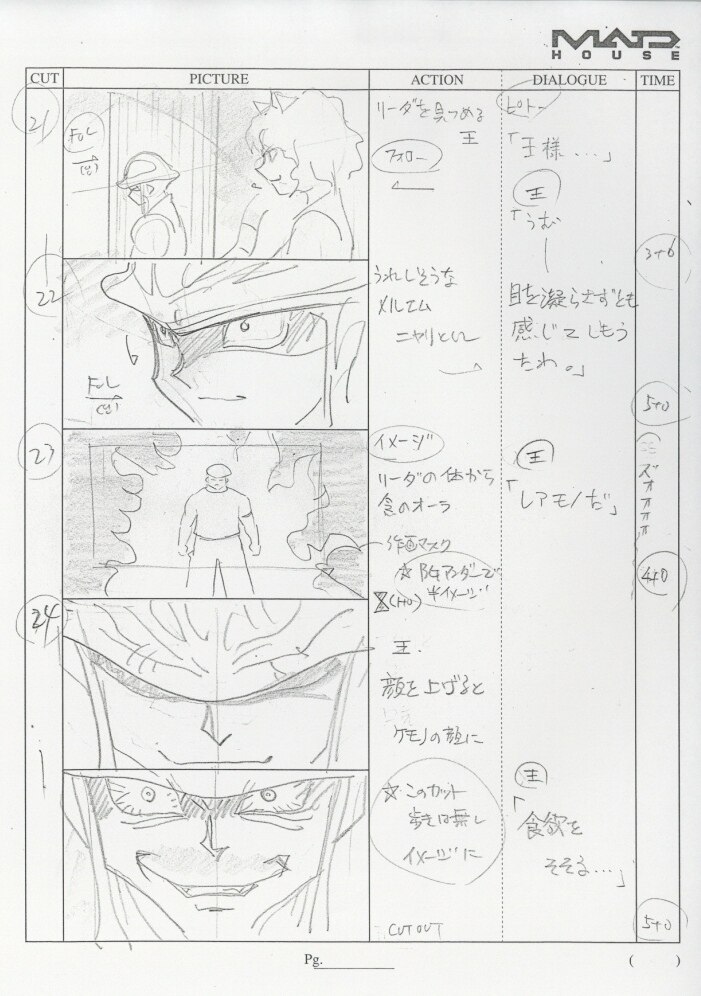 MAD
HOUSE
CUT
PICTURE
ACTION
DIALOGUE
TIME
21
FOL
リーダを見つめる
王
フォロー
ピトー
「王様…」
王
「うむ
3+6
22
FOL
うれしそうな
メルエム
ニヤリとし
目を凝らさずとも
感じてしもう
たわ。」
5+0
23
イメージ
リーダの体から
食のオーラ
作画マスク
☆BGアンダーで
半イメージ
王
「レアモノだ」
ズォォォォ
4+0
24
王.
顔を上げると
ケモノの顔に
☆このカット
歩きは無し
イメージに
CUT OUT
王
「食欲を
そそる…」
5+0
Pg.
( )